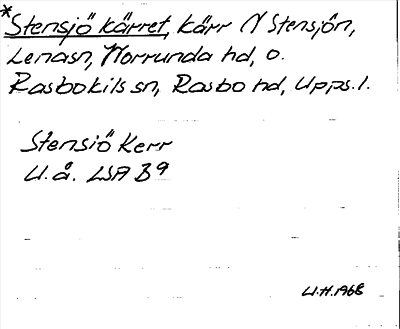 *Stensjö kärret, kärr N Stensjön,
Lenasn, Norrunda hd, o.
Rasbokils sn, Rasbo hd, Upps.l.
Stensiö Kerr
U.å. LSA B9
U.H.1968